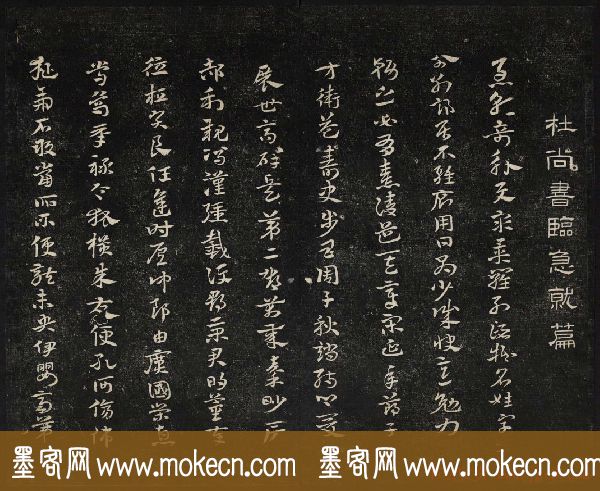 杜尚書臨急就篇
急就奇觚與衆異羅列諸物名姓字
分別部居不雜廁用日約少誠快意勉力
務之必有憙請道其章宋延年鄭子
方衛益壽史步昌周千秋趙孺卿爰
展世高辟兵第二鄧萬歲秦眇房
郝利親馮漢彊戴護郡景君明董奉
德桓賢良任逢時侯仲郎由廣國榮惠
常烏承祿令狐橫朱交便孔何傷師
猛虎石敢當所不侵龍未央伊嬰齊
墨客网 www.mokecn.com 墨客网 www.mokecn.com